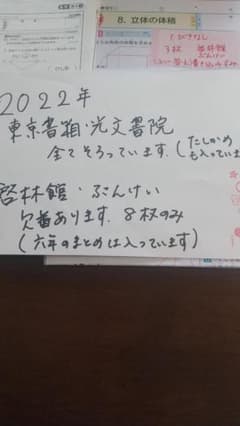 8. 立体の体積
3枚
２０２２年
東京書籍・光文書院
全てそろっています.(たしかめも入っていま
啓林館・ぶんけい
欠番あります. ８枚のみ
(六年のまとめは入っています)